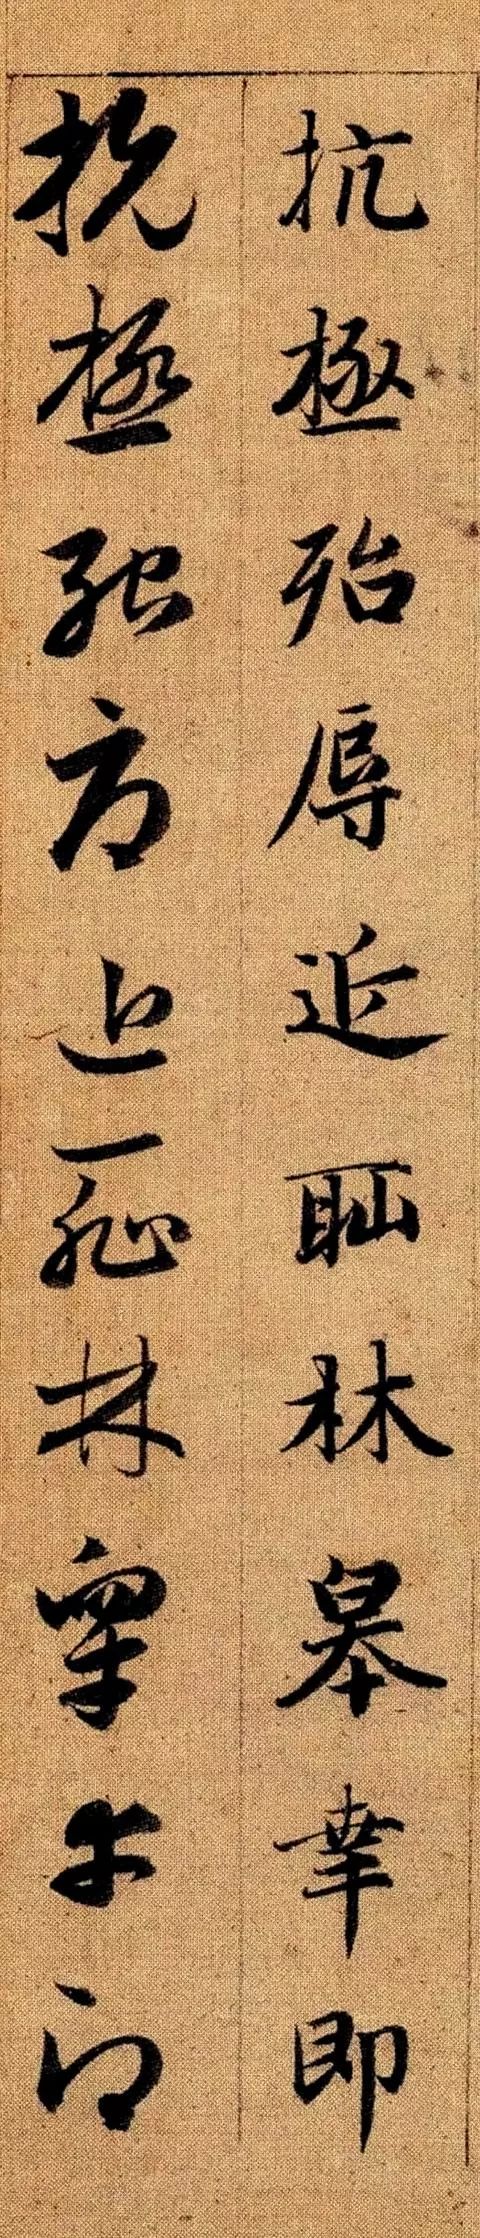 抗極殆辱近耻林皋幸即
抗極殆辱近耻林皋幸即